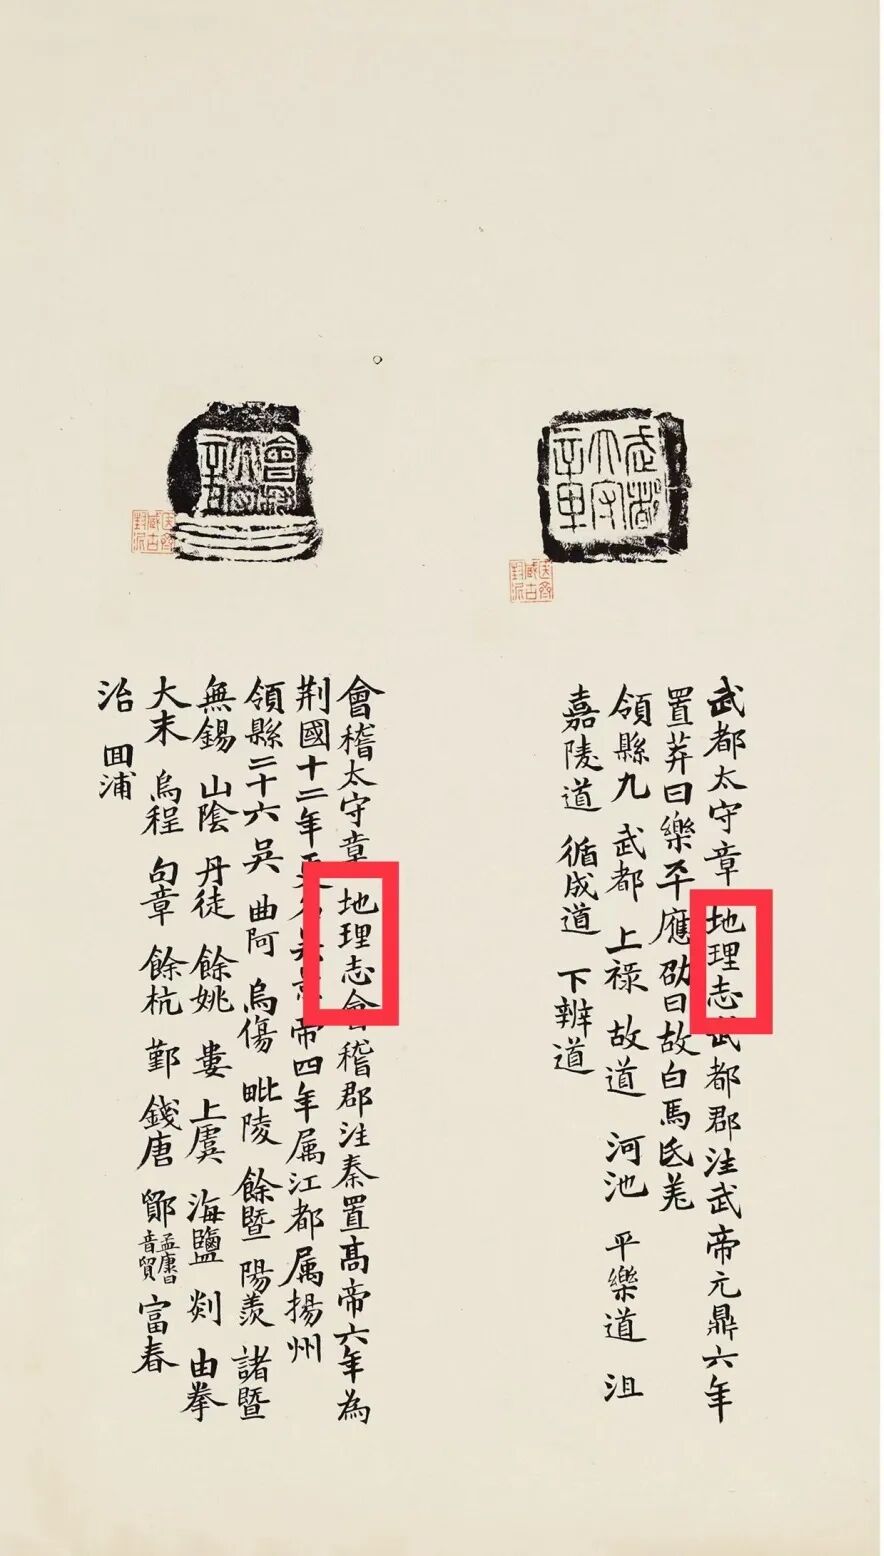 武都
大守
章
會稽
武都太守章 地理志武都郡注武帝元鼎六年
置莽曰樂平應劭曰故白馬氐羌
領縣九 武都 上祿 故道 河池 平樂道 沮
嘉陵道 循成道 下辨道
會稽太守章 地理志會稽郡注秦置髙帝六年為
荆國十二年更名吳景帝四年属江都属揚州
領縣二十六 吳 曲阿 烏傷 毗陵 餘暨 陽羨 諸暨
無錫 山陰 丹徒 餘姚 婁 上虞 海鹽 剡 由拳
大末 烏程 句章 餘杭 鄞 錢唐 鄮 孟康曰音貿 富春
治 回浦